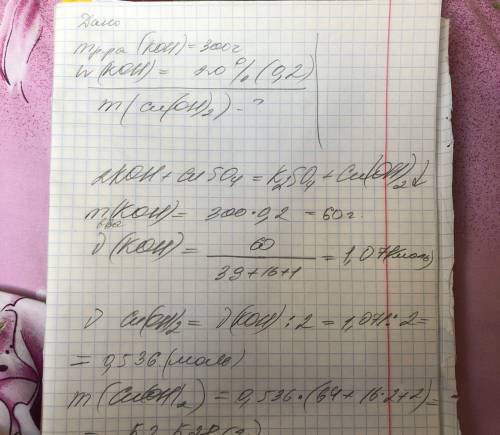 Дано
mр-ра (KOH) = 300г
w(KOH) = 20% (0,2)
m(Cu(OH)2) - ?
2KOH + CuSO4 = K2SO4 + Cu(OH)2↓
m(KOH) = 300·0,2 = 60г.
в-ва
ν(KOH) = 60 / 39+16+1 = 1,071(моль)
ν Cu(OH)2 = ν(KOH) : 2 = 1,071 : 2 =
= 0,536 (моль)
m(Cu(OH)2) = 0,536·(64 + 16·2+2) =
= 52,528 (г)